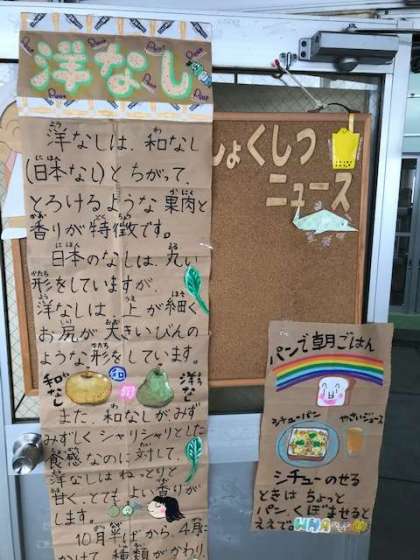 洋なし
洋なしは、和なし
(日本なし)とちがって、
とろけるような果肉と
香りが特徴です。
日本のなしは、丸い
形をしていますが、
洋なしは、上が細く
お尻が大きいびんの
ような形をしています。
和なし
和
洋
洋なし
また、和なしがみず
みずしくシャリシャリとした
食感なのに対して、
洋なしはねっとりと
甘く、とてもよい香りが
します。
10月半ばから、4月に
かけて、種類がかわり
しょくしつ
ニュース
パンで朝ごはん
シチューパン
やさいジュース
シチューのせる
ときは ちょっと
パン、くぼませると
ええで。